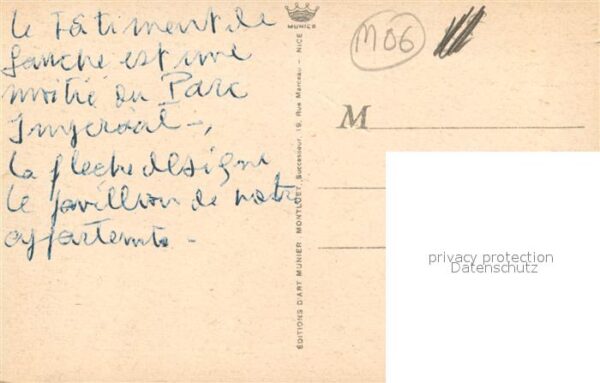 Le Bâtiment de
gauche est une
moitié du Parc
Impérial -,
la flèche désigne
le pavillon de notre
appartemts -
MUNIER
EDITIONS D'ART MUNIER MONTLUET, Successeur, 19, Rue Marceau - NICE
M06
M
privacy protection
Datenschutz